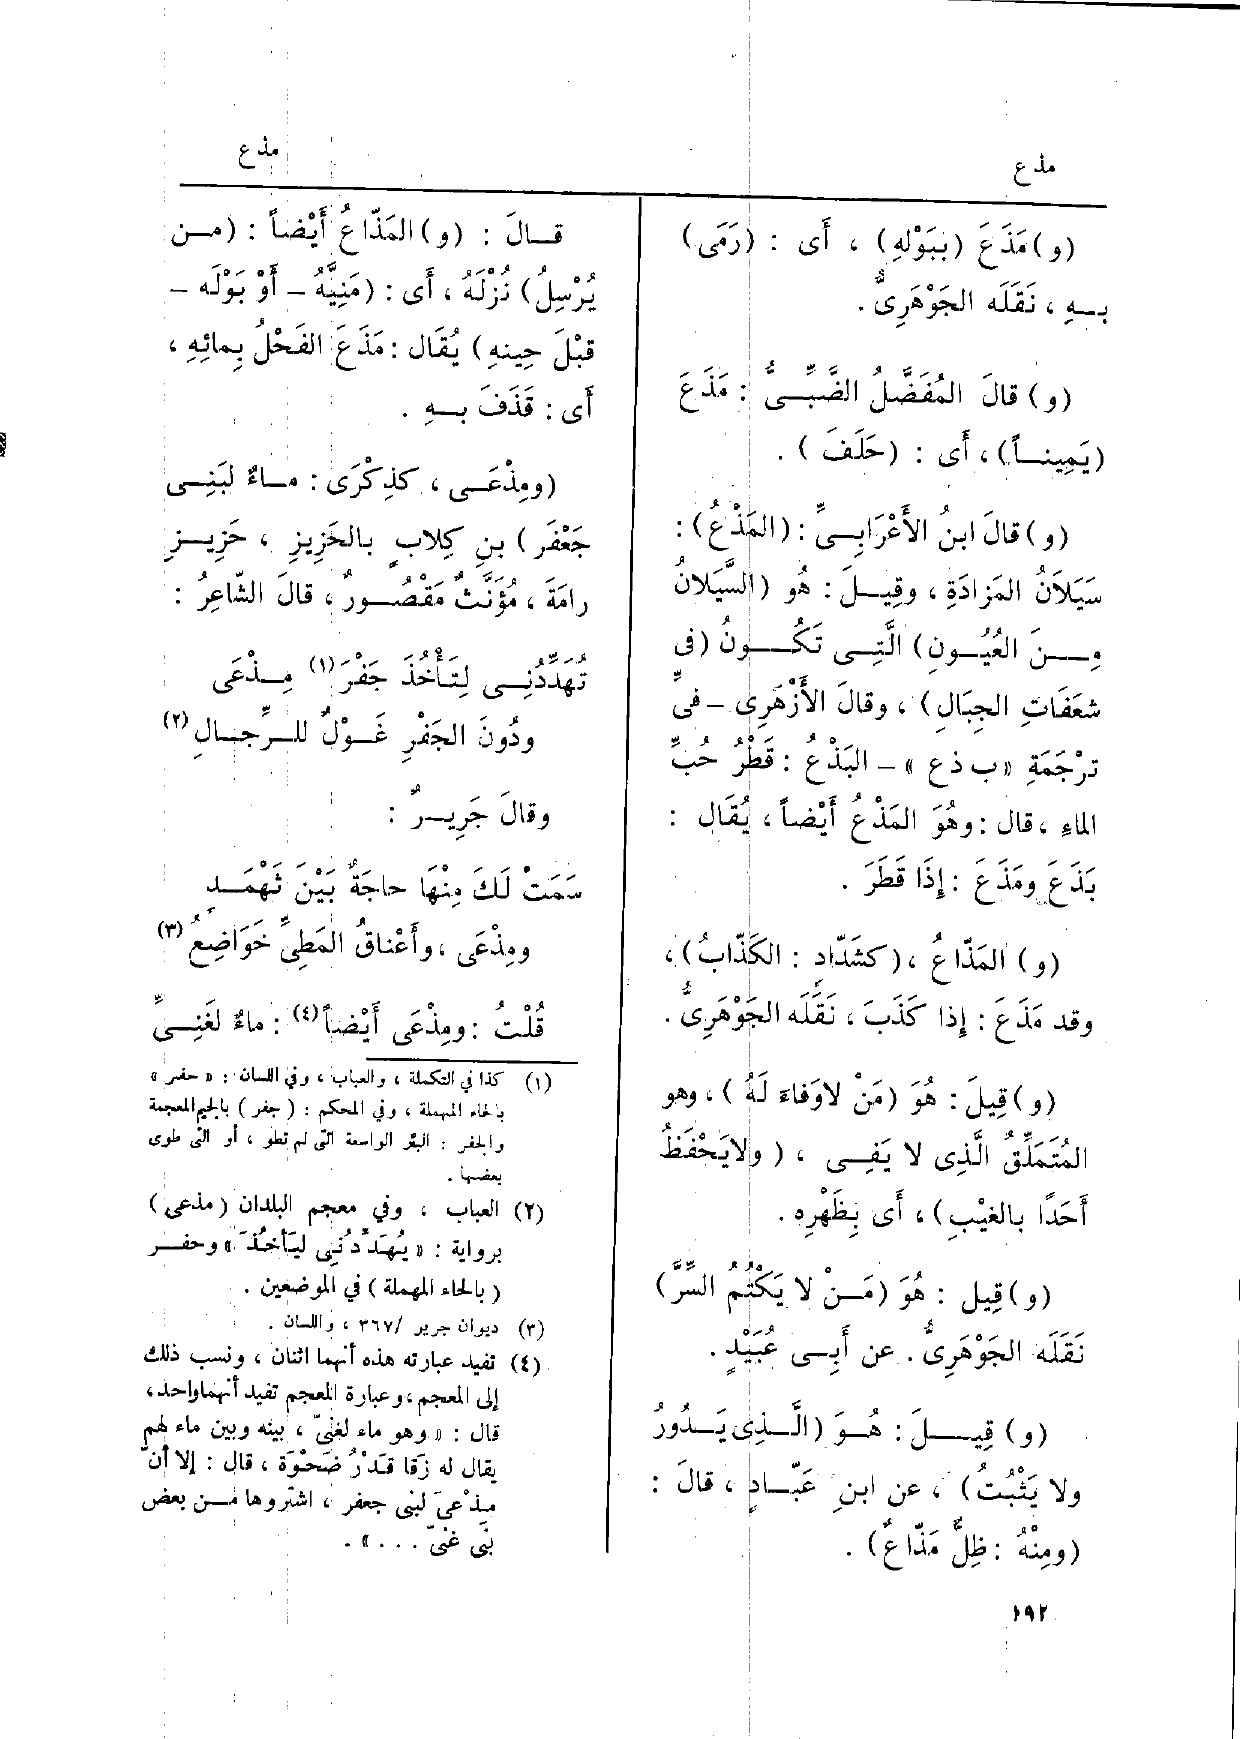 مذع
مذع
(و) مَذَعَ (بِبَوْلِهِ) ، أَى : (رَمَى)
بـهِ ، نَقَلَه الجَوْهَرِىُّ .
(و) قالَ المُفَضَّلُ الضَّبِّـىُّ : مَذَعَ
(يَمِينـاً) ، أَى : (حَلَفَ ) .
(و) قالَ ابنُ الأَعْرَابِـىِّ : (المَذْعُ) :
سَيَلَانُ المَزادَةِ ، وقِيـلَ : هُو (السَّيَلانُ
مِـنَ العُيُـونِ) الَّتِـى تَكُـونُ (فى
شَعَفَاتِ الجِبَالِ) ، وقالَ الأَزْهَرِىُّ – فى
تَرْجَمَةِ «ب ذ ع» – البَذْعُ : قَطْرُ حُبِّ
الماءِ ، قال : وهُوَ المَذْعُ أَيْضـاً ، يُقَال :
بَذَعَ ومَذَعَ : إِذَا قَطَرَ .
(و) المَذّاعُ ، (كشَدَّادٍ : الكَذَّابُ) ،
وقد مَذَعَ : إِذا كَذَبَ ، نَقَلَه الجَوْهَرِىُّ .
(و) قِيلَ : هُوَ (مَنْ لاوَفاءَ لَهُ ) ، وهو
المُتَمَلِّقُ الَّذِى لا يَفِـى ، ( ولايَحْفَظُ
أَحَدًا بالغَيْبِ) ، أَى بِظَهْرِه .
(و) قِيل : هُوَ (مَـنْ لا يَكْتُم السِّرَّ)
نَقَلَه الجَوْهَرِىُّ . عن أَبِـى عُبَيْدٍ .
(و) قِيـلَ : هُـوَ (الَّـذِى يَـدُورُ
ولا يَثْبُتُ) ، عن ابنِ عَبَّـادٍ ، قالَ :
(ومِنْهُ : ظِلٌّ مَذّاعٌ) .
قـالَ : (و) المَذّاعُ أَيْضاً : (مـن
يُرْسِلُ) نُزْلَهُ ، أَى : (مَنِيَّهُ – أَوْ بَوْلَه –
قَبْلَ حِينهِ) يُقَال : مَذَعَ الفَحْلُ بِمائِهِ ،
أَى : قَذَفَ بـهِ .
(ومِذْعَـى ، كذِكْرَى : مـاءٌ لبَنِـى
جَعْفَر) بنِ كِلابٍ بالحَزِيزِ ، حَزِيـزِ
رامَةَ ، مُؤَنَّثٌ مَقْصُـورٌ ، قالَ الشّاعِرُ :
تُهَدِّدُنِـى لِتَأْخُذَ جَفْرَ (١) مِـذْعَى
ودُونَ الجَفْرِ غَـوْلٌ للـرِّجـالِ (٢)
وقالَ جَرِيـرٌ :
سَمَتْ لَكَ مِنْهَا حاجَةٌ بَيْنَ ثَهْمَـدٍ
ومِذْعَى ، وأَعْناقُ المَطِىِّ خَوَاضِعُ (٣)
قُلْتُ : ومِذْعَى أَيْضاً (٤) : ماءٌ لغَنِـىٍّ
(١) كذا في التكملة ، والعباب ، وفي اللسان : « حفر »
بالحاء المهملة ، وفي المحكم : (جفر) بالجيم المعجمة
والجفر : البئر الواسعة التى لم تطو ، أو التى طوى
بعضها .
(٢) العباب ، وفي معجم البلدان (مذعى)
برواية : « يُهَدِّدُنِى ليَأْخُذَ » وحفـر
(بالحاء المهملة) في الموضعين .
(٣) ديوان جرير /٣٦٧ ، واللسان .
(٤) تفيد عبارته هذه أنهما اثنان ، ونسب ذلك
إلى المعجم ، وعبارة المعجم تفيد أنهما واحد ،
قال : « وهو ماء لغنىّ ، بينه وبين ماء لهم
يقال له زقا قَدْرُ ضَحْوَة ، قال : إلا أنّ
مِذْعى لبنى جعفر ، اشتروها مـن بعض
بَنى غَنىّ ... » .
١٩٢